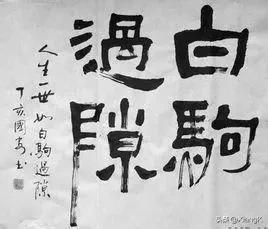 白駒
過隙
人生一世如白駒過隙
丁亥國安书
头条 @XiangK